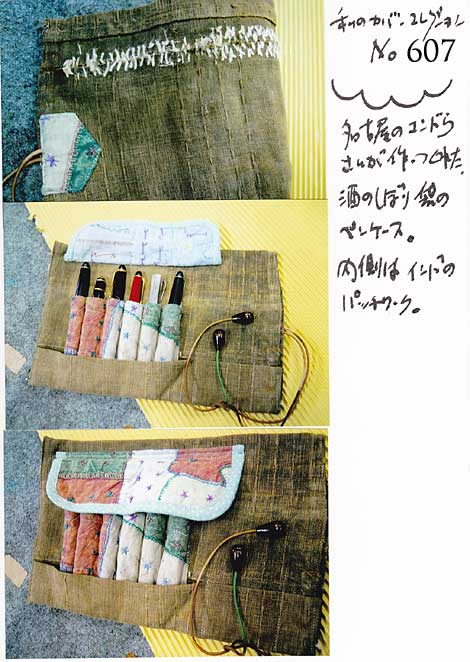 私のカバンコレクション
No 607
名古屋のコンドウ
さんが作ってくれた、
酒のしぼり袋の
ペンケース。
内側はインドの
パッチワーク。